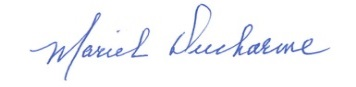 Mariel Ducharme